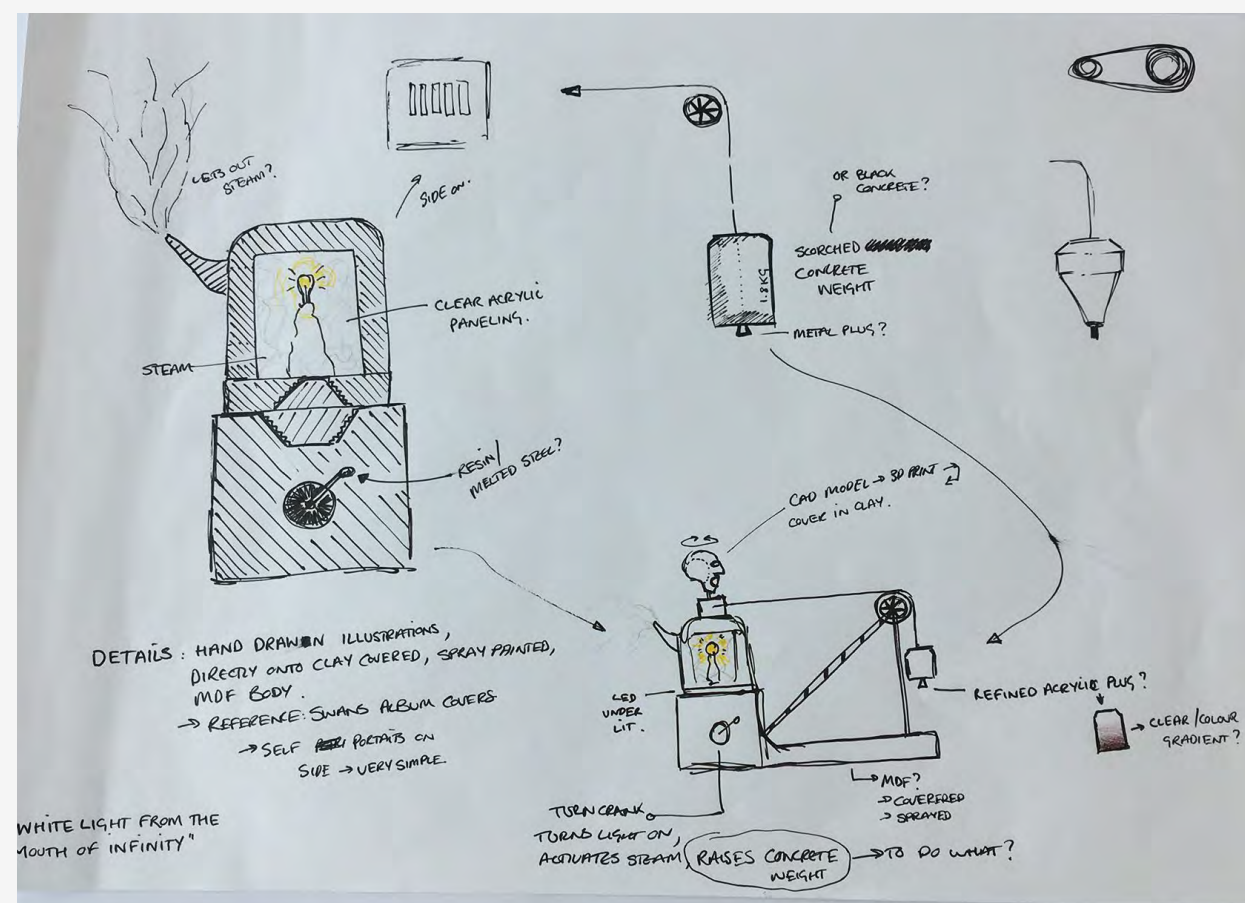 LETS OUT
STEAM?
SIDE ON.
CLEAR ACRYLIC
PANELING.
STEAM
RESIN/
MELTED STEEL?
OR BLACK
CONCRETE?
SCORCHED
CONCRETE
WEIGHT
1.8KG
METAL PLUG?
CAD MODEL → 3D PRINT
COVER IN CLAY.
DETAILS : HAND DRAWN ILLUSTRATIONS,
DIRECTLY ONTO CLAY COVERED, SPRAY PAINTED,
MDF BODY.
→ REFERENCE: SWANS ALBUM COVERS
→ SELF PORTAITS ON
SIDE → VERY SIMPLE.
WHITE LIGHT FROM THE
MOUTH OF INFINITY"
LED
UNDER
LIT.
REFINED ACRYLIC PLUG?
→ CLEAR/COLOUR
GRADIENT?
→ MDF?
→ COVERFRED
→ SPRAYED
TURN CRANK
TURNS LIGHT ON,
ACTIVATES STEAM, RAISES CONCRETE → TO DO WHAT?
WEIGHT